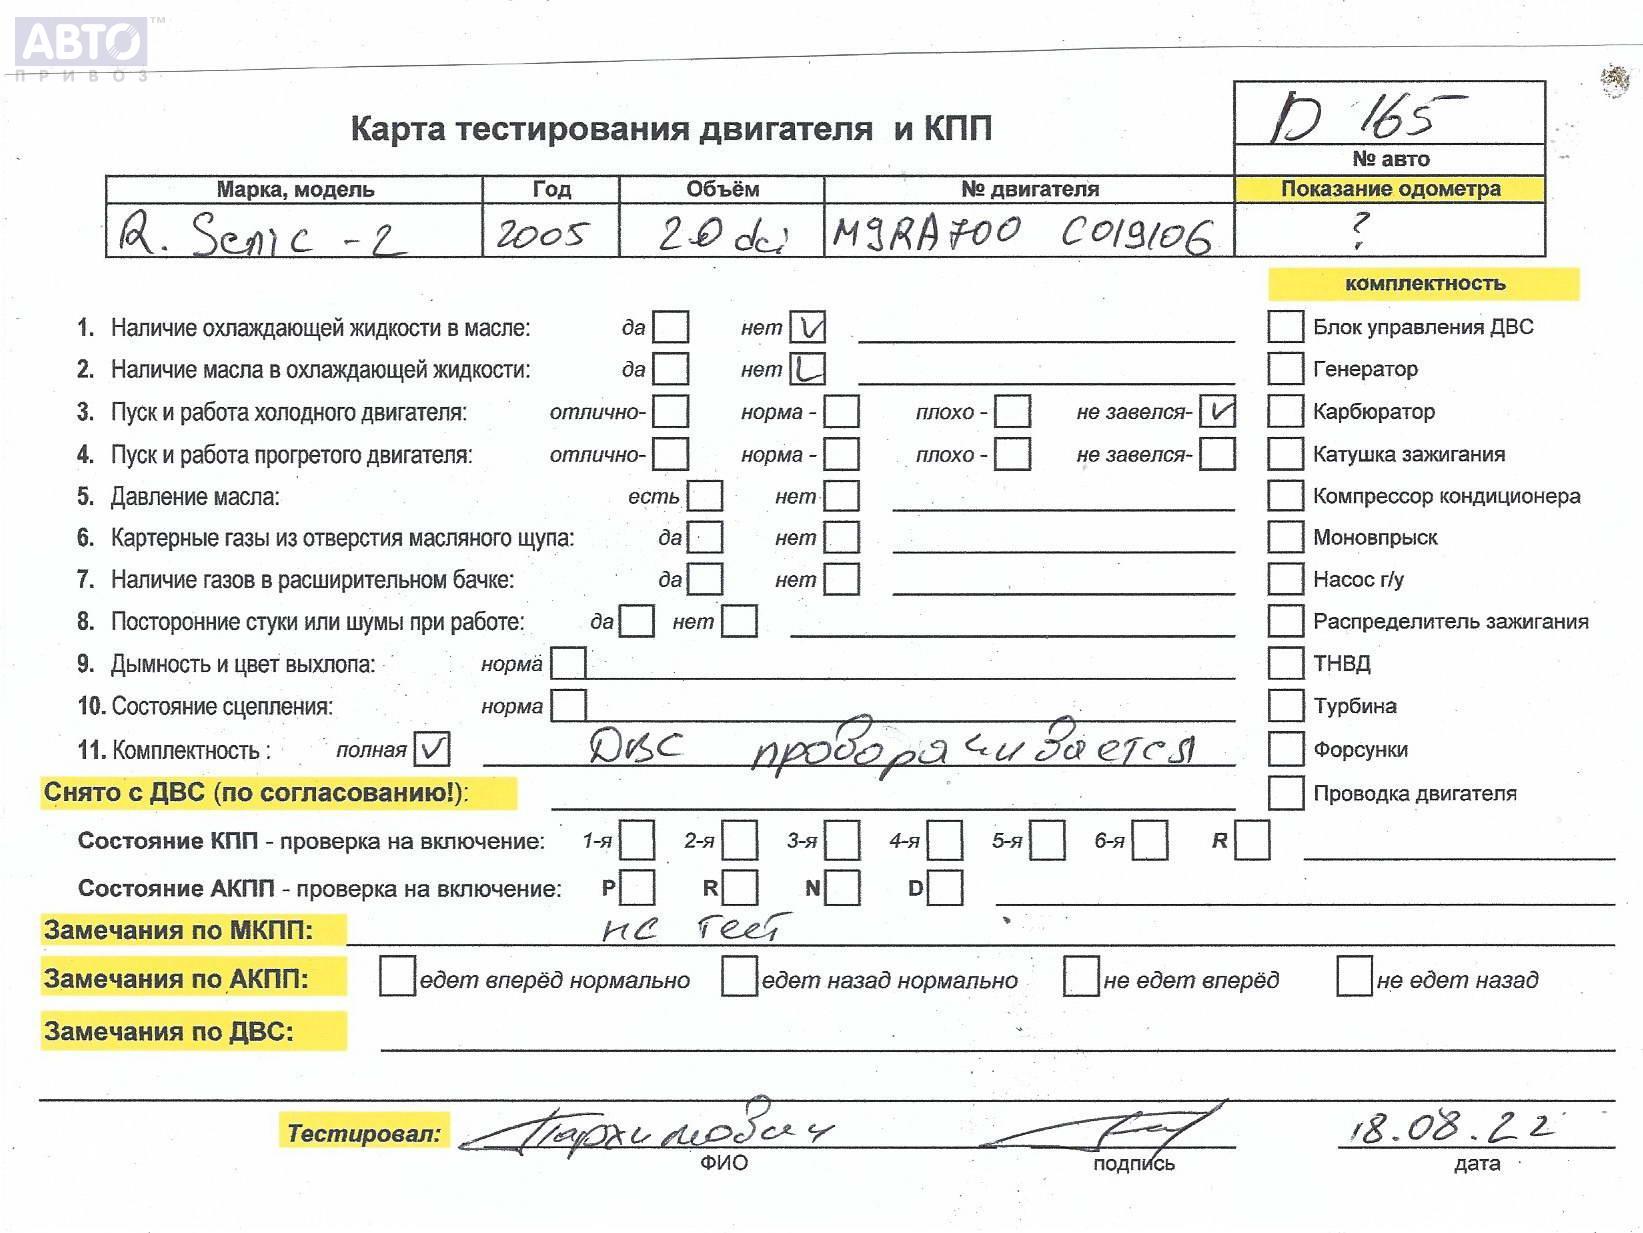 АВТО™
ПРИВОЗ
D 165
Карта тестирования двигателя и КПП
№ авто
Марка, модель Год Объём № двигателя Показание одометра
R. Senic -2 2005 2.0 dci M9RA700 C019106 ?
комплектность
1. Наличие охлаждающей жидкости в масле: да нет V Блок управления ДВС
2. Наличие масла в охлаждающей жидкости: да нет Генератор
3. Пуск и работа холодного двигателя: отлично- норма - плохо - не завелся- V Карбюратор
4. Пуск и работа прогретого двигателя: отлично- норма - плохо - не завелся- Катушка зажигания
5. Давление масла: есть нет Компрессор кондиционера
6. Картерные газы из отверстия масляного щупа: да нет Моновпрыск
7. Наличие газов в расширительном бачке: да нет Насос г/у
8. Посторонние стуки или шумы при работе: да нет Распределитель зажигания
9. Дымность и цвет выхлопа: норма ТНВД
10. Состояние сцепления: норма Турбина
11. Комплектность : полная V ДВС проворачивается Форсунки
Снято с ДВС (по согласованию!): Проводка двигателя
Состояние КПП - проверка на включение: 1-я 2-я 3-я 4-я 5-я 6-я R
Состояние АКПП - проверка на включение: P R N D
Замечания по МКПП: не тест
Замечания по АКПП: едет вперёд нормально едет назад нормально не едет вперёд не едет назад
Замечания по ДВС:
Тестировал: Пархимович 18.08.22
ФИО подпись дата